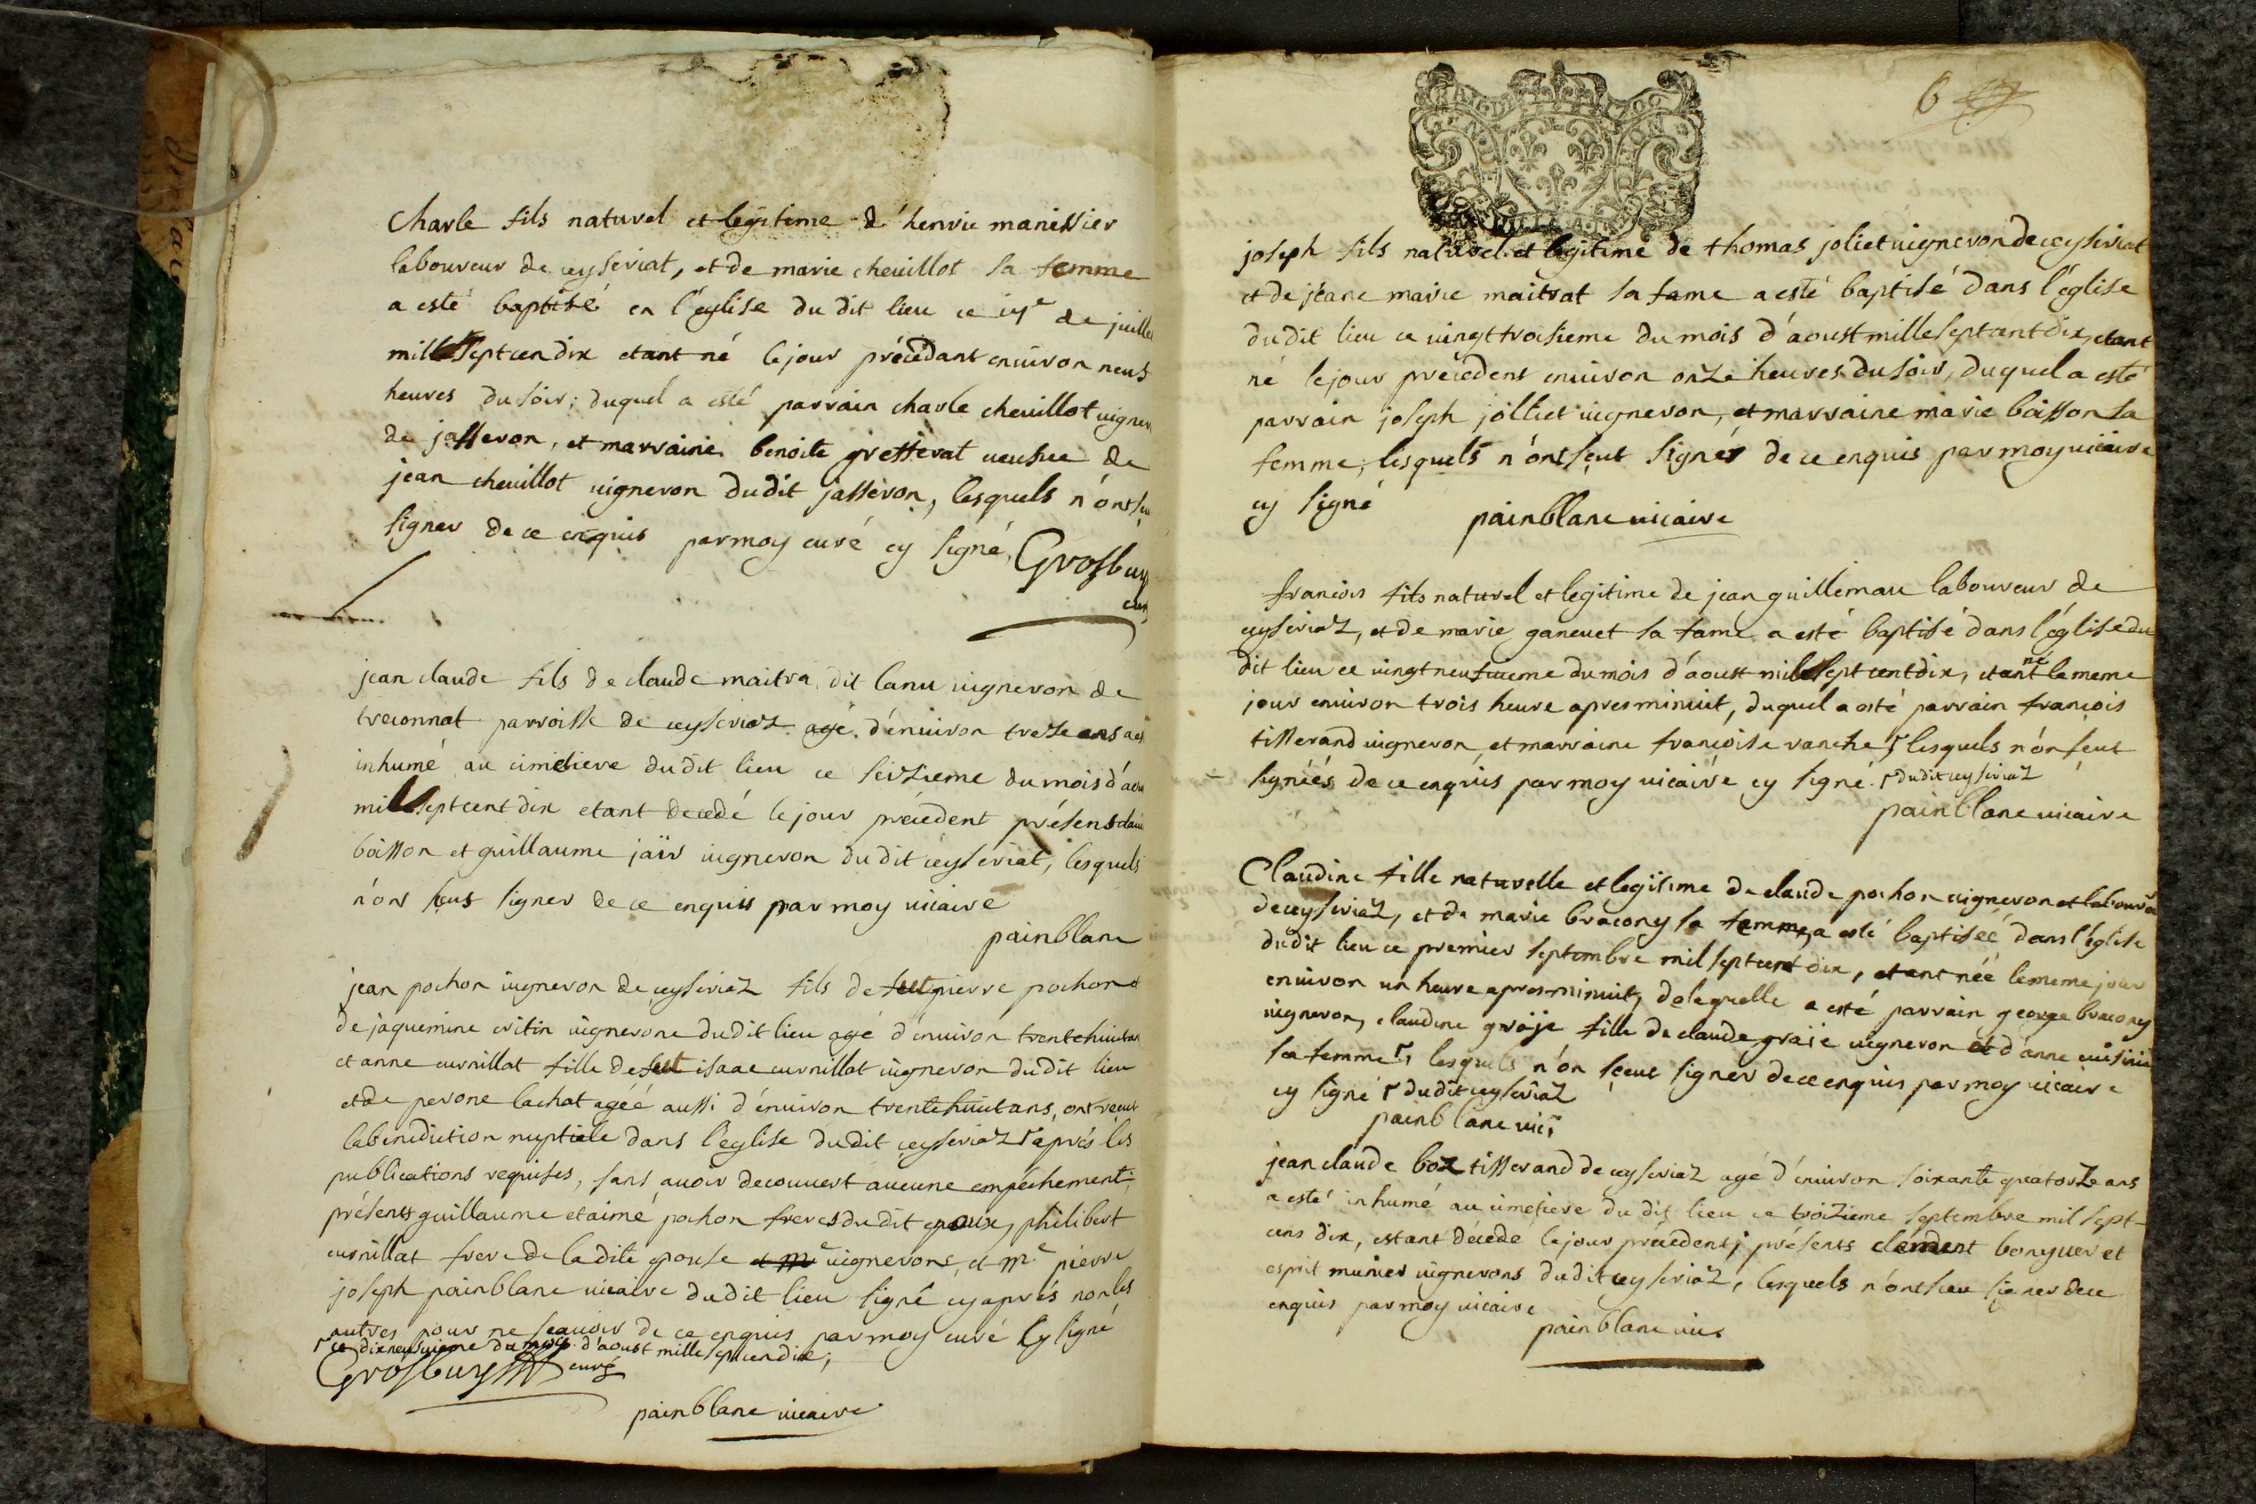 Charle fils naturel et legitime d'henrie manissier
laboureur de ceyseriat, et de marie cheuillot sa femme
a esté baptisé en l'eglise du dit lieu ce de juille
mille sept cen dix etant né le jour précédant enuiron neuf
heures du soir; duquel a esté parrain charle cheuillot uigner
de jasseron, et marraine benoite gresserat ueufue de
jean cheuillot uigneron dudit jasseron, lesquels n'ont sc
signer de ce enquis par moy curé cy signé, Grosbuy
curé
jean claude fils de claude maitra dit lanu uigneron de
treconnat parroisse de ceyseriaz agé d'enuiron treze ans a es
inhumé au cimetiere dudit lieu ce seizieme du mois d'aou
mil sept cent dix etant decedé le jour précédent présens claude
boisson et guillaume jaïr uigneron du dit ceyseriat, lesquels
n'ons sçeus signer de ce enquis par moy uicaire
painblanc
jean pochon uigneron de ceyseriaz fils de feut pierre pochon et
de jaquemine critin uignerone dudit lieu agé d'enuiron trente huit an
et anne curnillat fille de feut isaac curnillat uigneron dudit lieu
et de perone lachat agéé aussi d'énuiron trente huit ans, ont reçeut
la benediction nuptiale dans l'eglise du dit ceyseriaz┌ aprés les
publications requises, sans auoir decouuert aucune empéchement;
présents guillaume et aimé pochon freres du dit epoux, philibert
curnillat frere de la dite epouse et me uignerons, et me pierre
joseph painblanc uicaire dudit lieu signé cy aprés non les
autres pour ne sçauoir de ce enquis par moy curé cy signé
┌ ce dix neufuieme du mois d'aoust mille sept cen dix;
Grosbuy curé
painblanc uicaire
6
joseph fils naturel et legitime de thomas joliet uigneron de ceyseriat
et de jeane marie maitrat sa fame a esté baptisé dans l'église
dudit lieu ce uingt troisieme du mois d'aoust mille sept cent dix, etant
né le jour precedent enuiron onze heures du soir, duquel a esté
parrain joseph jolliet uigneron, et marraine marie boisson sa
femme, lesquels n'ont sçeut signér de ce enquis par moy uicaire
cy signé
painblanc uicaire
francois fils naturel et legitime de jean guillemau laboureur de
ceyseriaz, et de marie ganeuet sa fame a esté baptisé dans l'église du
dit lieu ce uingt neufuieme du mois d'aoust mille sept cent dix, etant né le meme
jour enuiron trois heure apres minuit, duquel a esté parrain francois
tisserand uigneron et marraine francoise ranche ┌ lesquels n'on sçeut
signés de ce enquis par moy uicaire cy signé. ┌ du dit ceyseriaz
painblanc uicaire
Claudine fille naturelle et legitime de claude pochon uigneron et laboureur
de ceyseriaz, et de marie bracony sa femme, a esté baptiséé dans l'église
dudit lieu ce premier septembre mil sept cent dix, etant néé le meme jour
enuiron un heure apres minuit, de laquelle a esté parrain george bracony
uigneron, claudine graje fille de claude graje uigneron et d'anne cuisinie
sa femme ┌, lesquels n'on sçeut signer de ce enquis par moy uicaire
cy signé ┌ dudit ceyseriaz
painblanc uic
jean claude boz tisserand de ceyseriaz agé d'enuiron soixante quatorze ans
a esté inhumé au cimetiere du dit lieu ce troizieme septembre mil sept
cens dix, estant décede le jour precédent; présents clément bonguer et
esprit munier uignerons dudit ceyseriaz, lesquels n'ont sceu signer de ce
enquis par moy uicaire
painblanc uic